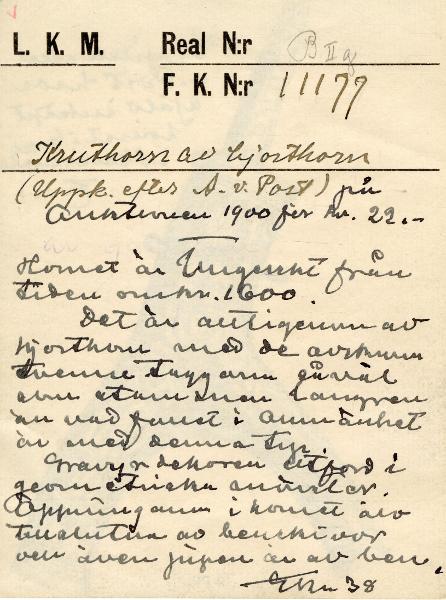 L. K. M. Real N:r B II g
F. K. N:r 11177
Kruthorn av hjorthorn
(Uppk. efter A. v. Post) på
Auktionen 1900 för kr. 22.-
Hornet är Ungerskt från
tiden omkr. 1600.
Det är av
hjorthorn med de
tvenne taggarna såväl
som stammen längre
än vad fallet i allmänhet
är med denna typ.
Gravyrdekoren utförd i
geometriska mönster.
Öppningarna i hornet äro
tillslutna av benskivor
och även pipen är av ben.
38